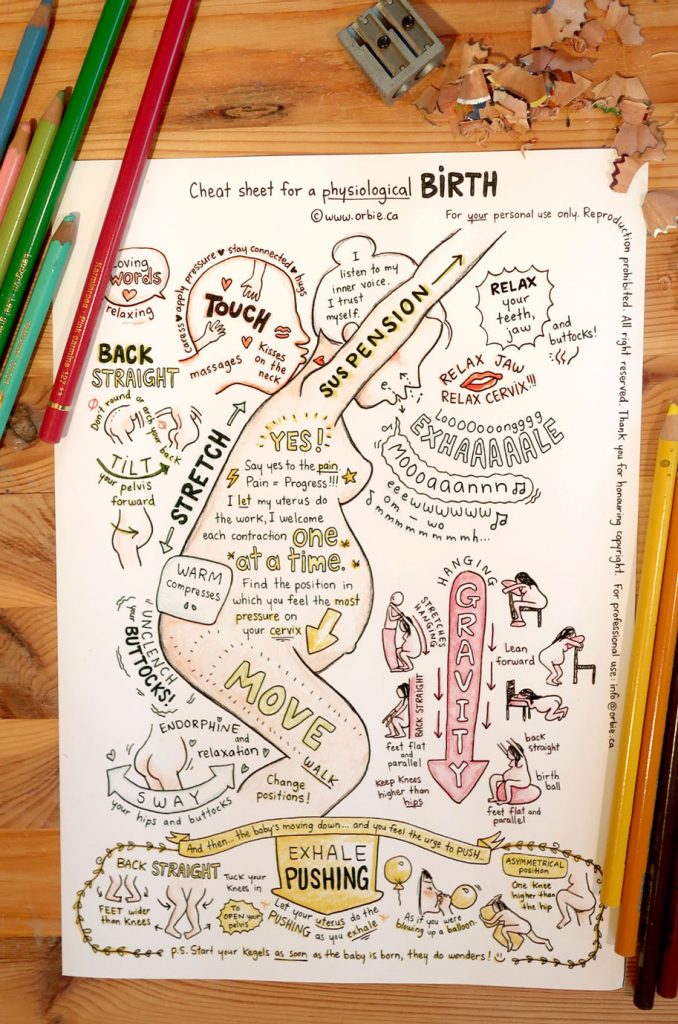 Cheat sheet for a physiological BiRTH
©www.orbie.ca
For your personal use only. Reproduction prohibited. All right reserved. Thank you for honouring copyright. For professional use: info@orbie.ca
Loving
words
relaxing
caress ♥ apply pressure ♥ stay connected ♥ hugs
TOUCH
massages ♥ Kisses
on the
neck
I
listen to my
inner voice.
I trust
myself.
SUSPENSION
RELAX
your
teeth,
jaw
and
buttocks!
RELAX JAW
RELAX CERVIX!!!
LooOOooongggg
EXHAAAAALE
MOOOaaannn♫
eeewwwwwww
om - wo
mmmmmmmmh...
BACK
STRAIGHT
Don't round or arch your back
TILT
your pelvis
forward
STRETCH
YES!
Say yes to the pain.
Pain = Progress!!!
I let my uterus do
the work, I welcome
each contraction one
at a time.
Find the position in
which you feel the most
pressure on
your cervix
WARM
compresses
UNCLENCH
your BUTTOCKS!
MOVE
WALK
Change
positions!
ENDORPHINE and
relaxation
SWAY
your hips and buttocks
HANGING
GRAVITY
STRETCHES
HANGING
Lean
forward
BACK STRAIGHT
feet flat
and
parallel
Keep Knees
higher than
hips
back
straight
birth
ball
feet flat and
parallel
And then... the baby's moving down... and you feel the urge to PUSH...
EXHALE
PUSHING
BACK STRAIGHT
FEET wider
than Knees
Tuck your
Knees in
TO
OPEN your
pelvis
Let your uterus do the
PUSHING
as you exhale
As if you were
blowing up a balloon.
ASYMMETRICAL
position
One knee
higher than
the hip
p.s. Start your Kegels as soon as the baby is born, they do wonders!